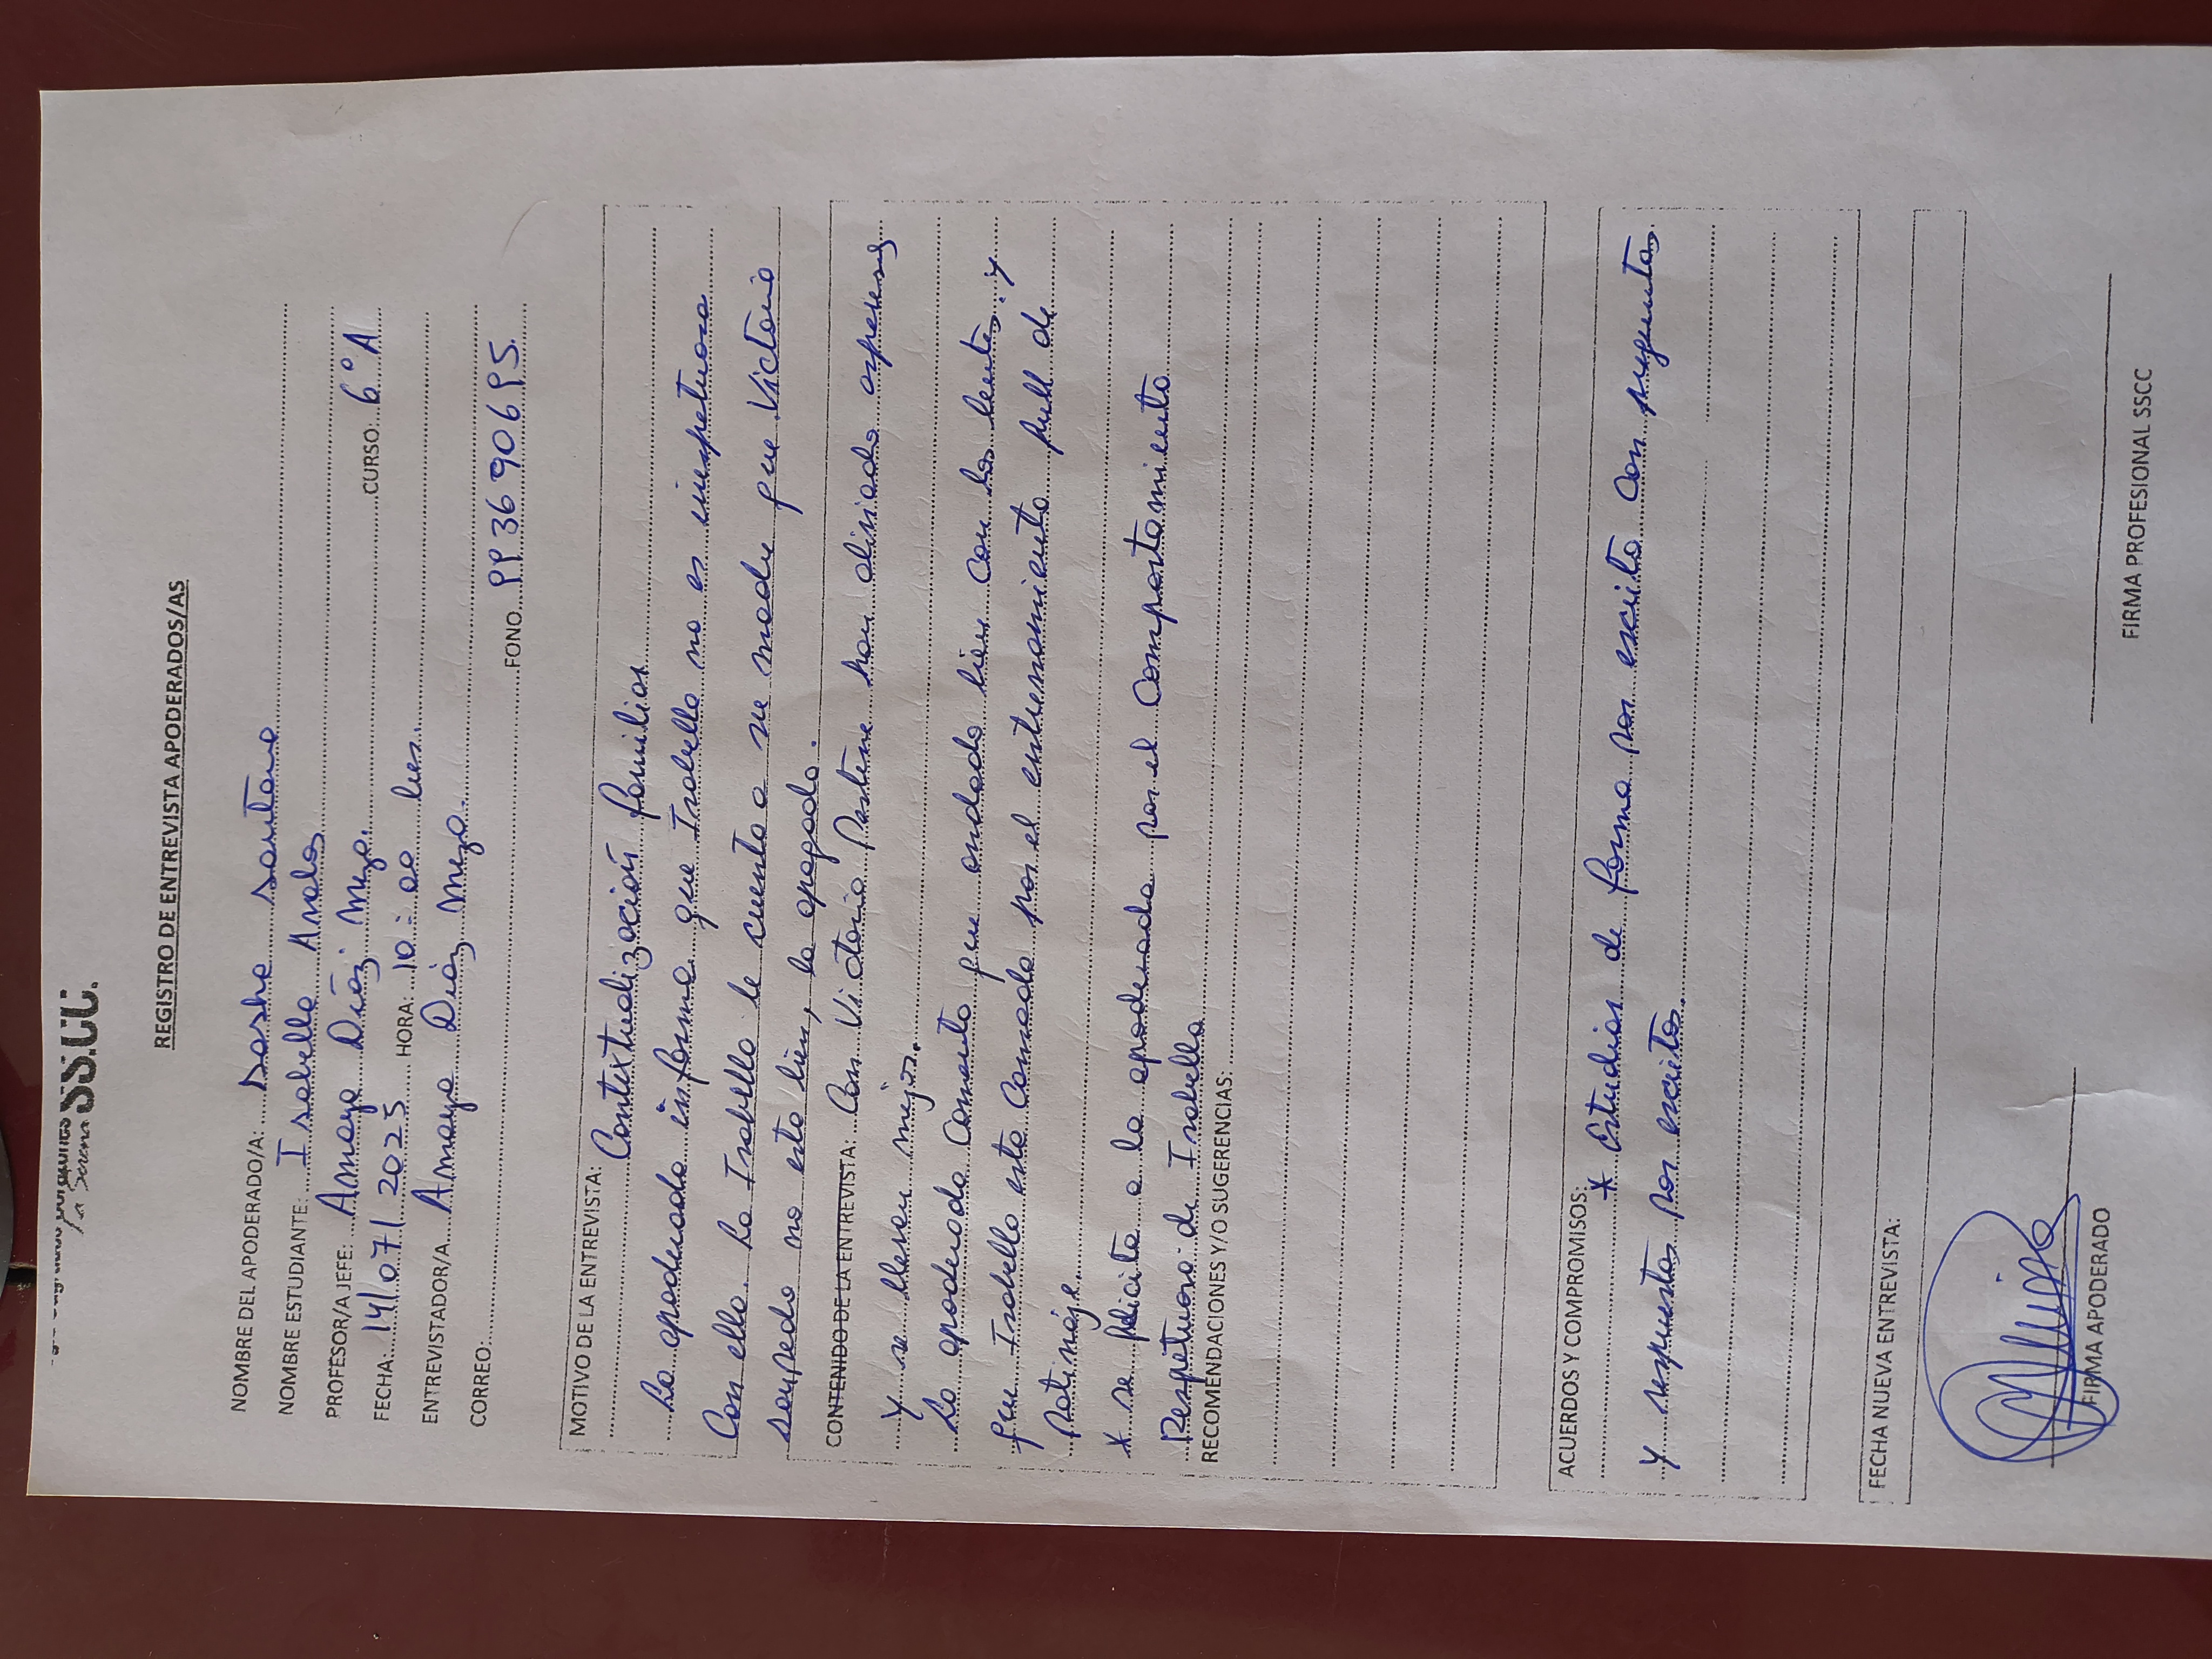 SS.CC.
La Serena
REGISTRO DE ENTREVISTA APODERADOS/AS
NOMBRE DEL APODERADO/A: Dasha Santana
NOMBRE ESTUDIANTE: Isabella Avalos
PROFESOR/A JEFE: Amaya Díaz Meza. CURSO: 6° A
FECHA: 14/07/2025 HORA: 10:00 hrs.
ENTREVISTADOR/A. Amaya Díaz Meza.
CORREO: FONO PP3690695.
MOTIVO DE LA ENTREVISTA: Contextualización familiar
La apoderada informa que Isabella no es irrespetuosa
Con ella. La Isabella le cuenta a su madre que Victoria
no esta bien, la apagada.
CONTENIDO DE LA ENTREVISTA: Con Victoria Pastene han limado asperezas
Y se llevan mejor.
La apoderada Comenta que andado bien con los lentes. y
que Isabella esta Cansada por el entrenamiento full de
Patinaje.
* se felicita a la apoderada por el Comportamiento
Respetuoso de Isabella
RECOMENDACIONES Y/O SUGERENCIAS:
ACUERDOS Y COMPROMISOS: * Estudiar de forma por escrito con preguntas
Y respuestas por escritos.
FECHA NUEVA ENTREVISTA:
FIRMA APODERADO FIRMA PROFESIONAL SSCC